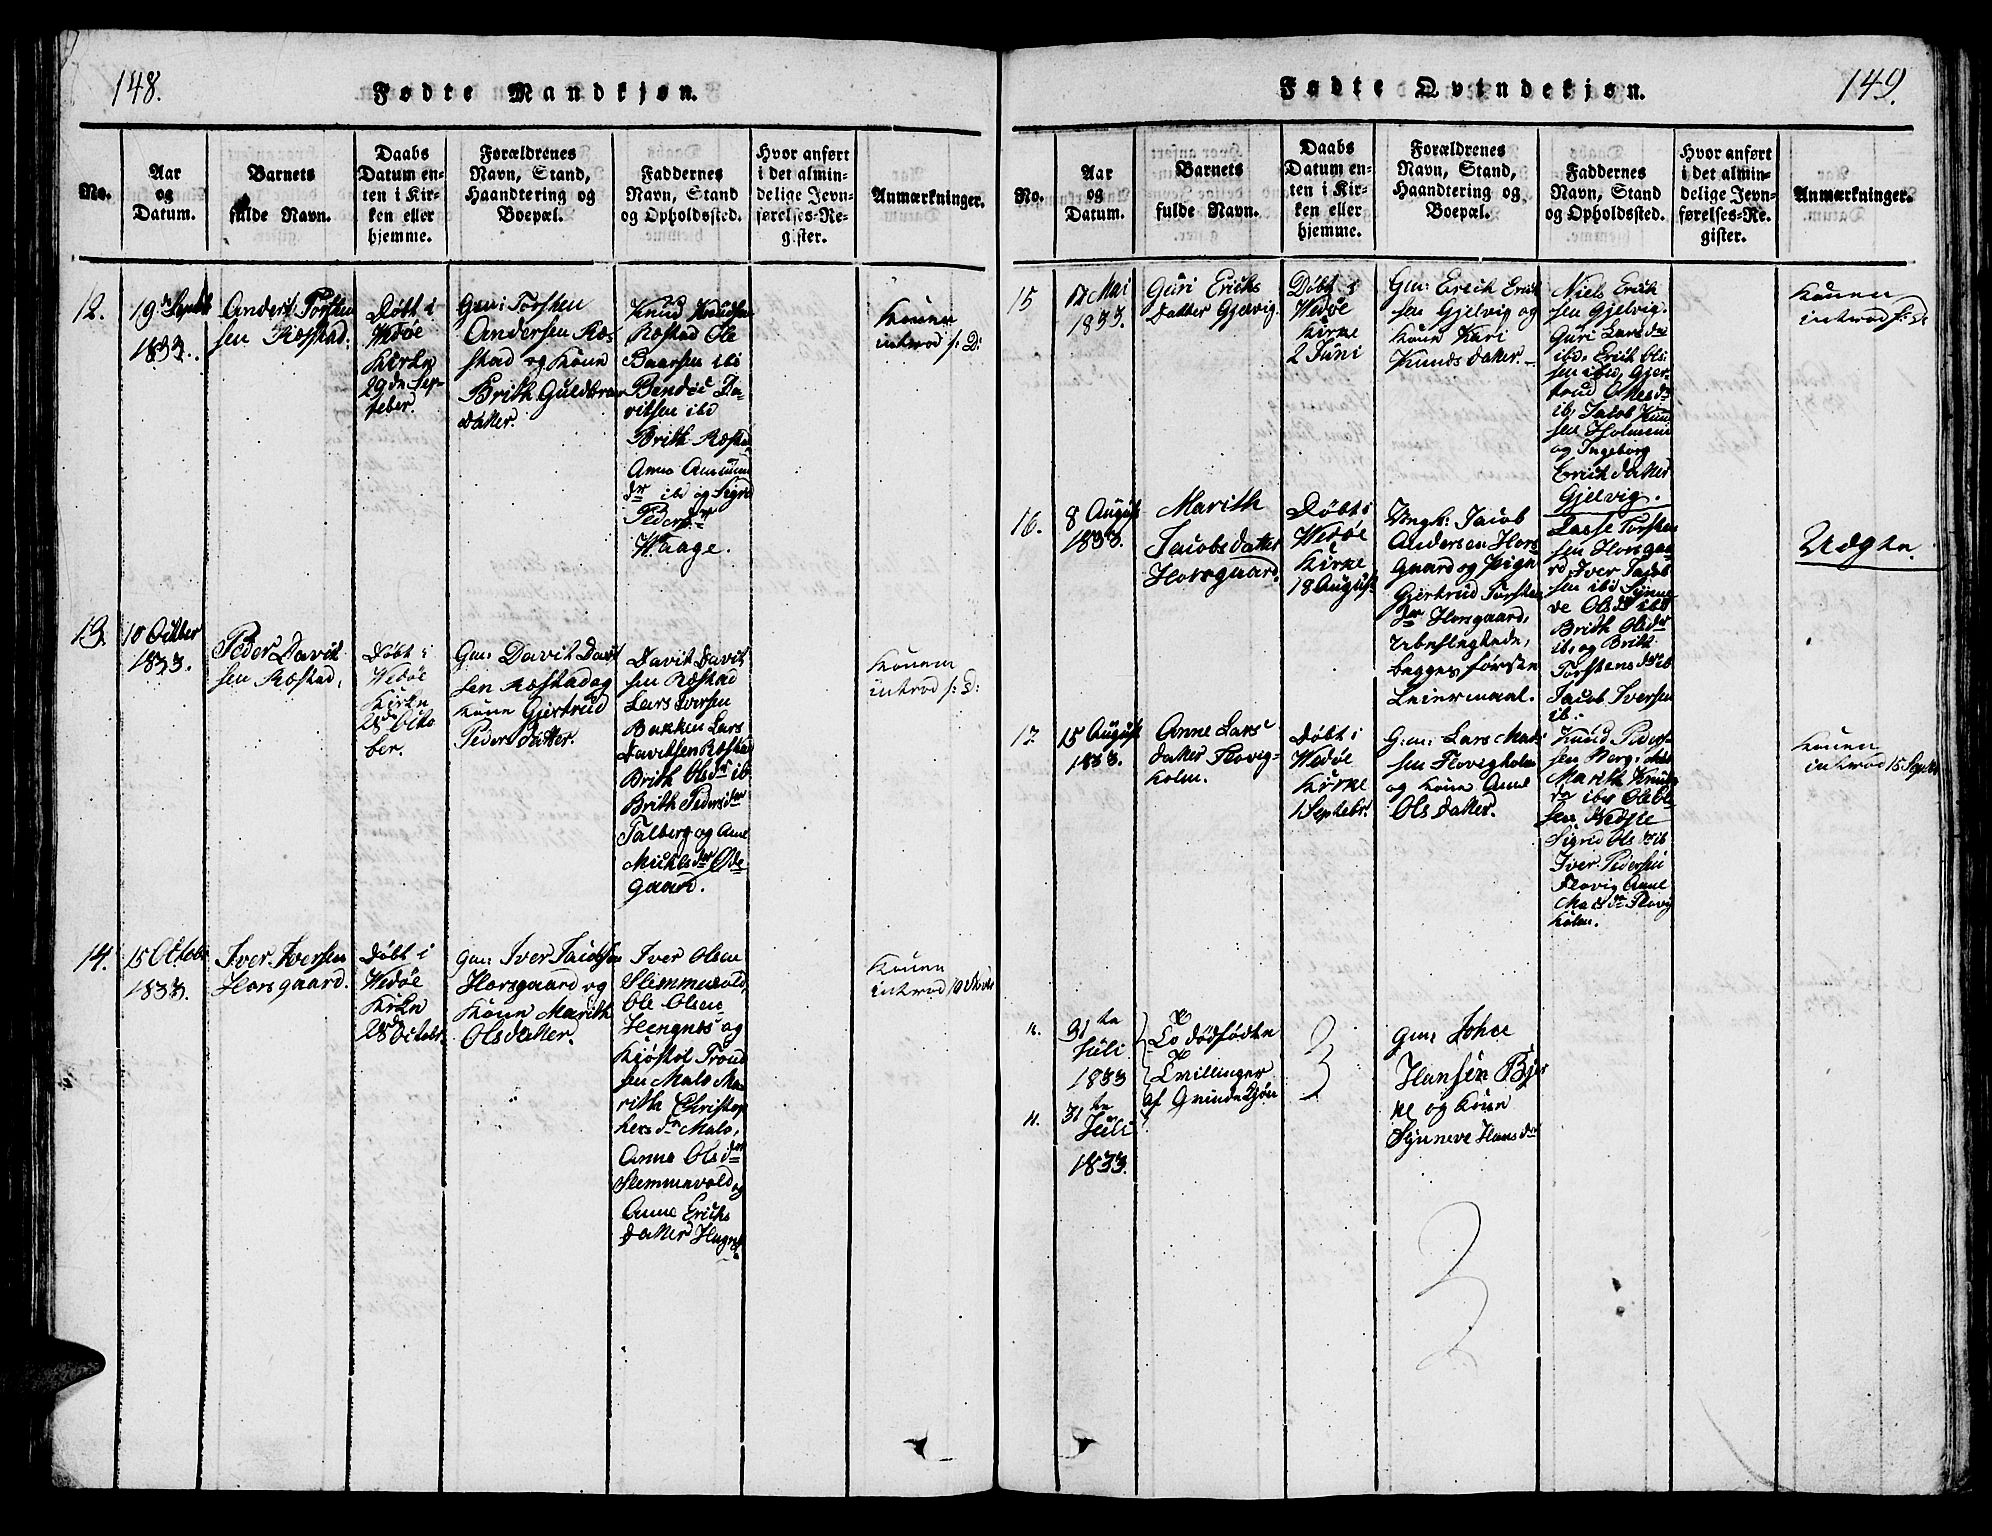 148.
Fødte Mandkjøn.
No.
Aar
og
Datum.
Barnets
fulde Navn.
Daabs
Datum en-
ten i Kir-
ken eller
hjemme.
Forældrenes
Navn, Stand,
Haandtering og
Boepæl.
Faddernes
Navn, Stand
og Opholdssted.
Hvor anført
i det almin-
delige Jevn-
førelses-Re-
gister.
Anmærkninger.
12.
1833.
Anders Torsten
sen Røstad.
Døbt i
Wedøe
Kirke
29de Sep-
teber.
Gm: Torsten
Andersen Røs-
stad og Kone
Brith Guldbran
datter.
Knud Knudsen
Røstad Ole
ibd
Bendic Da-
vitsen ibd
Brith Røstad
Anna Amun
dr ibd og Sigrid
Peders dr
Waage.
Konen
introd s: D:
13.
10 Octber
1833.
Peder Davit
sen Røstad,
Døbt i
Wedøe
Kirke
Octo
ber.
Gm: Davit Davit
sen Røstad og
Kone Gjertrud
Peders datter.
Davit Davit
sen Røstad
Lars Iversen
Bakken Lars
Davitsen Røstad
Brith Olsdr ib
Brith Pedersdr
Talberg og Ane
dr Øde-
gaard.
Konen
introd s: D:
14.
15 Octobr
1833.
Iver Iversen
Horsgaard.
Døbt i
Wedøe
Kirke
Octobr.
Gm: Iver Jacobsen
Horsgaard og
Kone Marith
Olsdatter.
Iver Olsen
Slemmevold,
Ole Olsen
Hengnes og
Trond
sen Malo Ma-
rithe Christop
hers dr Malo,
Anne Olsdr
Slemmevold og
Anne Erichs
datter
Konen
introd
149.
Fødte Qvindekjøn.
No.
Aar
og
Datum.
Barnets
fulde Navn.
Daabs
Datum en-
ten i Kir-
ken eller
hjemme.
Forældrenes
Navn, Stand,
Haandtering og
Boepæl.
Faddernes
Navn, Stand
og Opholdssted.
Hvor anført
i det almin-
delige Jevn-
førelses-Re-
gister.
Anmærkninger.
15
Mai
1833.
Guri Erichs
datter Gjelvig.
Døbt i
Wedøe
Kirke
2 Juni
Gm: Erich Erich
sen Gjelvig og
Kone Kari
Knuds datter.
Niels Erich
sen Gjelvig.
Guri Lars dr
ibd. Erich Ol
sen ibd, Gjer-
trud dr
ib, Jacob Knud
sen Holmene
og Ingeborg
Erich datter
Gjelvig.
Konen
introd s: D:
16.
8 August
1833.
Marith
Jacobs datter
Horsgaard.
Døbt i
Wedøe
Kirke
18 August
Ungk: Jacob
Andersen Hors
gaard og Pige
Gjertrud Torsten
dr Horsgaard,
Ubeslegtede,
begges første
Leiermaal.
Lasse Torsten
sen Horsgaa-
rd Iver Jacob
sen ibd Synne-
ve Olsdr ibd
Brith Olsdr
ib, og Brith
Torstens dr ib
Jacob Iversen
ib.
Uægte.
17
15 August
1833.
Anne Lars
datter Flovig-
holm.
Døbt i
Wedøe
Kirke
1 Septebr.
Gm: Lars Mats
sen Flovigholm
og Kone Anne
Ols datter.
Knud Peder-
sen
Marith Knuds
Ole Ol-
sen
Sigrid Ols dr ib
Iver Pedersen
Flovig Anne
Mats dr Flovig
holm.
Konen
introd 15 Septbr
31te
Juli
1833
To dødfødte
Tvillinger
af Qvindekjøn
Gm: Johan
Hansen
og Kone
Synneve Hans dr
31te
Juli
1833.